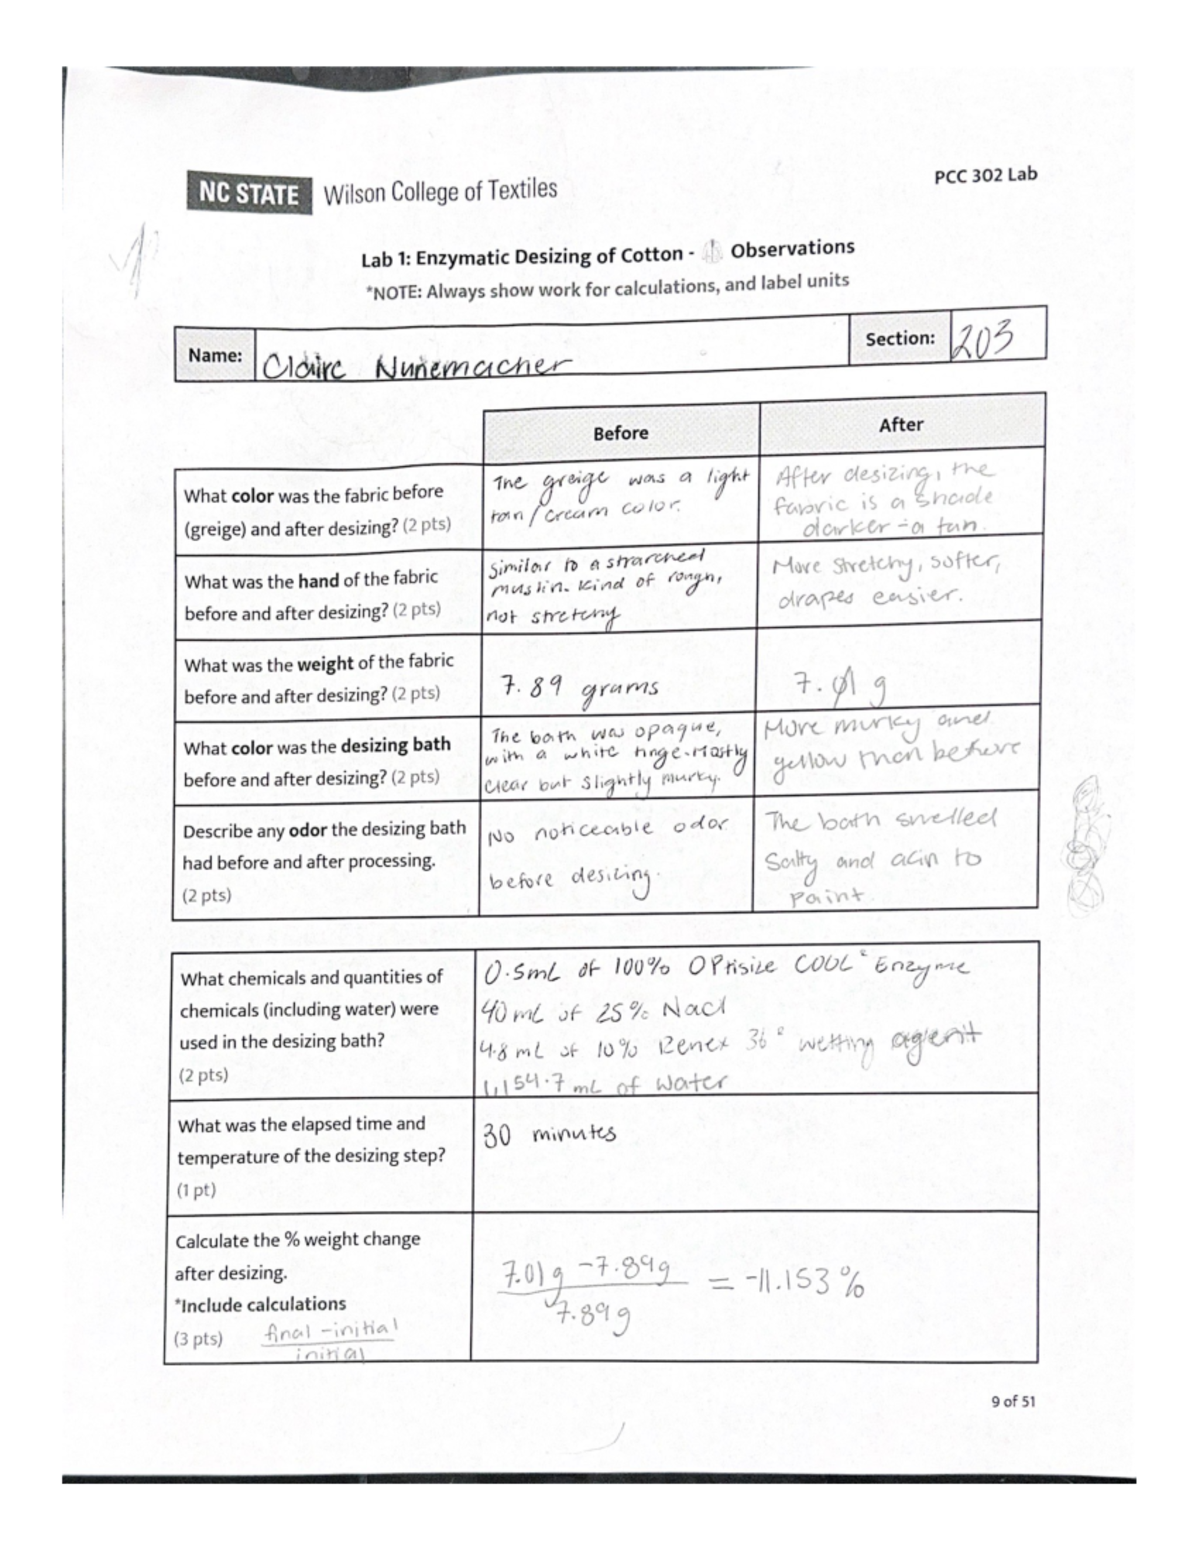 NC STATE Wilson College of Textiles
PCC 302 Lab
Lab 1: Enzymatic Desizing of Cotton - Observations
*NOTE: Always show work for calculations, and label units
Name: Claire Nunemacher Section: 203
Before After
What color was the fabric before
(greige) and after desizing? (2 pts)
The greige was a light
tan/cream color.
After desizing, the
fabric is a shade
darker - a tan.
What was the hand of the fabric
before and after desizing? (2 pts)
Similar to a strarched
muslin. Kind of rough,
not stretchy
More stretchy, softer,
drapes easier.
What was the weight of the fabric
before and after desizing? (2 pts)
7.89 grams
7.01 g
What color was the desizing bath
before and after desizing? (2 pts)
The bath was opaque,
with a white tinge. Mostly
clear but slightly murky.
More murky and
yellow than before
Describe any odor the desizing bath
had before and after processing.
(2 pts)
No noticeable odor
before desizing.
The bath smelled
salty and akin to
paint.
What chemicals and quantities of
chemicals (including water) were
used in the desizing bath?
(2 pts)
0.5mL of 100% OPtisize COOL Enzyme
40 mL of 25% Nacl
4.8 mL of 10% Renex 36° wetting agent
1,154.7 mL of water
What was the elapsed time and
temperature of the desizing step?
(1 pt)
30 minutes
Calculate the % weight change
after desizing.
*Include calculations
(3 pts) final - initial
initial
7.01g - 7.89g = -11.153%
7.89g
9 of 51